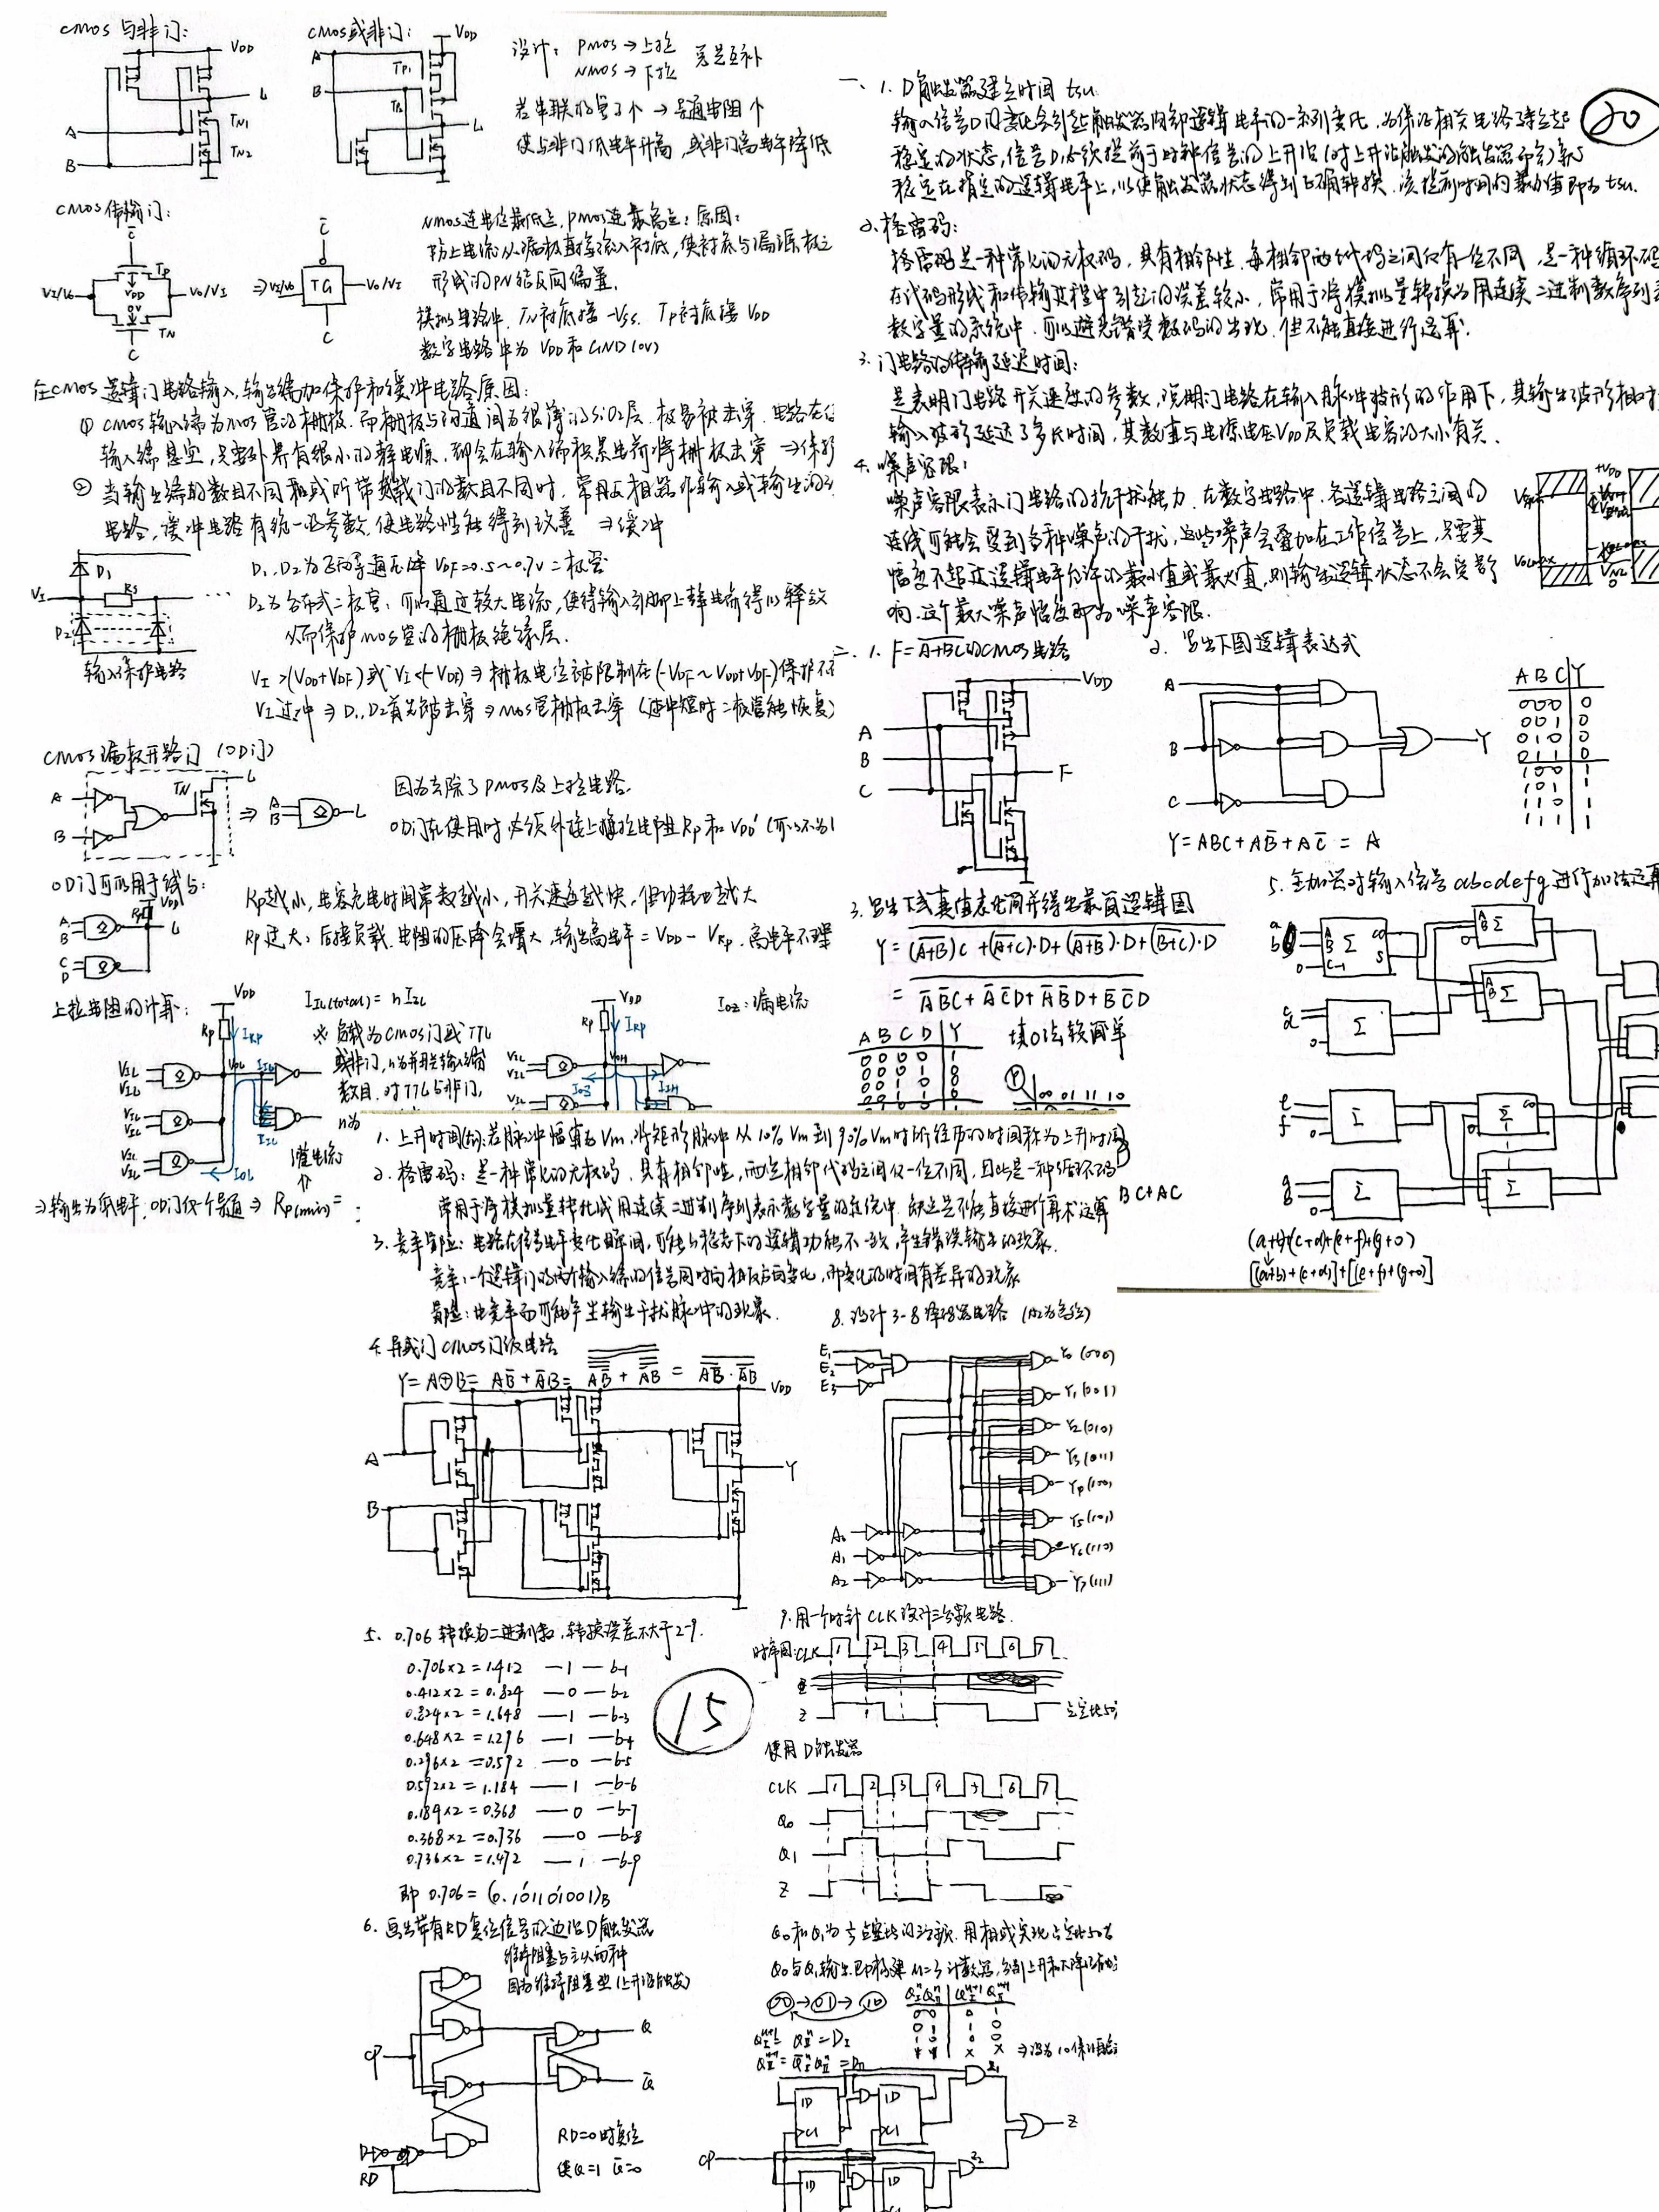 CMOS 与非门:
VDD
L
A
B
TN1
TN2
CMOS或非门:
VDD
A
B
TP1
L
设计: PMOS → 上拉
NMOS → 下拉
若串联的管子个 → 导通电阻个
使与非门低电平升高,或非门高电平降低
CMOS传输门:
C̅
TP
VI/Vo
VDD
0V
Vo/VI
TN
C
⇒
C̅
VI/Vo
TG
Vo/VI
C
NMOS连电位最低点,PMOS连最高点:原因:
防止电流从漏极直接流入衬底,使衬底与漏源极之
形成的PN结反向偏置.
模拟电路中. TN衬底接 -VSS. TP衬底接 VDD
数字电路中为 VDD 和 GND(0V)
在CMOS逻辑门电路输入,输出端加保护和缓冲电路原因:
① CMOS输入端为MOS管的栅极.而栅极与沟道间为很薄的SiO2层.极易被击穿.电路在
输入端悬空,只要外界有很小的静电源,都会在输入端积累电荷将栅极击穿 ⇒保护
② 当输出端的数目不同和或所带负载门的数目不同时.常用反相器作输入或输出的
电路,缓冲电路有统一的参数,使电路性能得到改善 ⇒缓冲
D1
VI
Rs
D2
输入保护电路
D1、D2为正向导通压降 VDF=0.5~0.7V 二极管
D2为分布式二极管,可以通过较大电流,使得输入引脚上静电荷得以释放
从而保护MOS管的栅极绝缘层.
VI >(VDD+VDF)或VI<(-VDF) ⇒ 栅极电位被限制在(-VDF ~ VDD+VDF)保护
VI过冲 ⇒ D1、D2首先被击穿 ⇒ MOS管栅极击穿 (过冲短时二极管能恢复)
CMOS漏极开路门 (OD门)
A
B
TN
L
⇒
A
B
L
因为去除了PMOS及上拉电路.
OD门在使用时必须外接上拉电阻Rp和VDD'
OD门可以用于线与:
VDD
Rp
A
B
C
D
L
Rp越小,电容充电时间常数越小,开关速度越快,但功耗也越大
Rp过大,后接负载.电阻的压降会增大,输出高电平=VDD - VRp.高电平不理
上拉电阻的计算:
VDD
Rp
IRp
VOL
VIL
VIL
VIL
VIL
VIL
VIL
IIL
IOL
灌电流
IIL(total)= nIIL
※ 负载为CMOS门或TTL
或非门,n为并联输入端
数目.对TTL与非门,
n为
VDD
Rp
IRp
VOH
VIL
VIL
VIL
IOZ
IIH
IOZ:漏电流
⇒输出为低电平,OD门仅个导通 ⇒ Rp(min)=
一、1. D触发器建立时间 tsu.
20
输入信号D的变化会引起触发器内部逻辑电平的一系列变化,为保证相关电路建立起
稳定的状态,信号D必须提前于时钟信号的上升沿(对上升沿触发的触发器而言)
稳定在指定的逻辑电平上,以使触发器状态得到正确转换.该提前时间的最小值即为tsu.
2.格雷码:
格雷码是一种常见的无权码,具有相邻性.每相邻两代码之间仅有一位不同,是一种循环码
在代码形成和传输过程中引起的误差较小.常用于将模拟量转换为用连续二进制数序列
数字量的系统中.可以避免错误数码的出现.但不能直接进行运算.
3.门电路的传输延迟时间:
是表明门电路开关速度的参数,说明门电路在输入脉冲波形的作用下,其输出波形相对
输入波形延迟了多长时间,其数值与电源电压VDD及负载电容的大小有关.
4.噪声容限:
噪声容限表示门电路的抗干扰能力.在数字电路中.各逻辑电路之间的
连线可能会受到各种噪声的干扰,这些噪声会叠加在工作信号上,只要其
幅度不超过逻辑电平允许的最小值或最大值,则输出逻辑状态不会受影
响.这个最大噪声幅度即为噪声容限.
+VDD
0
二、1. F=A+BC的CMOS电路
VDD
A
B
C
F
2. 写出下图逻辑表达式
A
B
C
Y
Y=ABC+AB̅+AC̅ = A
A B C Y
0 0 0 0
0 0 1 0
0 1 0 0
0 1 1 0
1 0 0 1
1 0 1 1
1 1 0 1
1 1 1 1
3.写出下式真值表化简并得出最简逻辑图
Y= (A+B)C +(A+C)·D+(A+B)·D+(B+C)·D
= A̅B̅C+A̅C̅D+A̅B̅D+B̅C̅D
A B C D Y
0 0 0 0 1
填0法较简单
Y
00 01 11 10
5.全加器对输入信号abcdefg进行加法运算
a
b
0
A
B
C-1
Σ
CO
S
c
d
0
Σ
e
f
0
Σ
g
0
Σ
BΣ
Σ
(a+b)+(c+d)+(e+f)+(g+0)
[(a+b)+(c+d)]+[(e+f)+(g+0)]
1. 上升时间(tr):若脉冲幅值为Vm.将矩形脉冲从10%Vm到90%Vm时所经历的时间称为上升时间
2.格雷码:是一种常见的无权码.具有相邻性,两位相邻代码之间仅一位不同,因此是一种循环码
BC+AC
常用于将模拟量转化成用连续二进制序列表示数字量的系统中.缺点是不能直接进行算术运算
3.竞争冒险:电路在信号电平变化瞬间,可能与稳态下的逻辑功能不一致,产生错误输出的现象.
竞争:一个逻辑门的两个输入端的信号同时向相反方向变化,而变化的时间有差异的现象
冒险:由竞争而可能产生输出干扰脉冲的现象.
4.异或门CMOS门级电路
Y=A⊕B= AB̅+A̅B= AB̅ + A̅B = AB̅·A̅B
VDD
A
B
Y
8.设计3-8译码器电路 (A2为高位)
E1
E2
E3
Y0(000)
Y1(001)
Y2(010)
Y3(011)
Y4(100)
Y5(101)
Y6(110)
Y7(111)
A0
A1
A2
5、0.706转换为二进制数,转换误差不大于2-9.
0.706×2=1.412 — 1 — b-1
0.412×2=0.824 — 0 — b-2
0.824×2=1.648 — 1 — b-3
0.648×2=1.296 — 1 — b-4
0.296×2=0.592 — 0 — b-5
0.592×2=1.184 — 1 — b-6
0.184×2=0.368 — 0 — b-7
0.368×2=0.736 — 0 — b-8
0.736×2=1.472 — 1 — b-9
即 0.706= (0.101101001)B
15
6.画出带有RD复位信号的边沿D触发器
维持阻塞与主从两种
因为维持阻塞型(上升沿触发)
CP
Q
Q̅
D
RD
RD=0时复位
使Q=1 Q̅=0
9.用一个时针CLK设计三分频电路.
时序图:CLK 1 2 3 4 5 6 7
Z
占空比50
使用D触发器
CLK 1 2 3 4 5 6 7
Q0
Q1
Z
Q0和Q1为⅓占空比的分频.用相或实现占空比50%
Q0与Q1输出.即构建M=3计数器,分别上升和下降沿
00→01→10
0 0 0 1
0 1 1 0
1 0 0 0
1 1 X X
⇒设为10保证自启
1D
C1
1D
C1
CP
Z1
Z2
Z
1D
1D